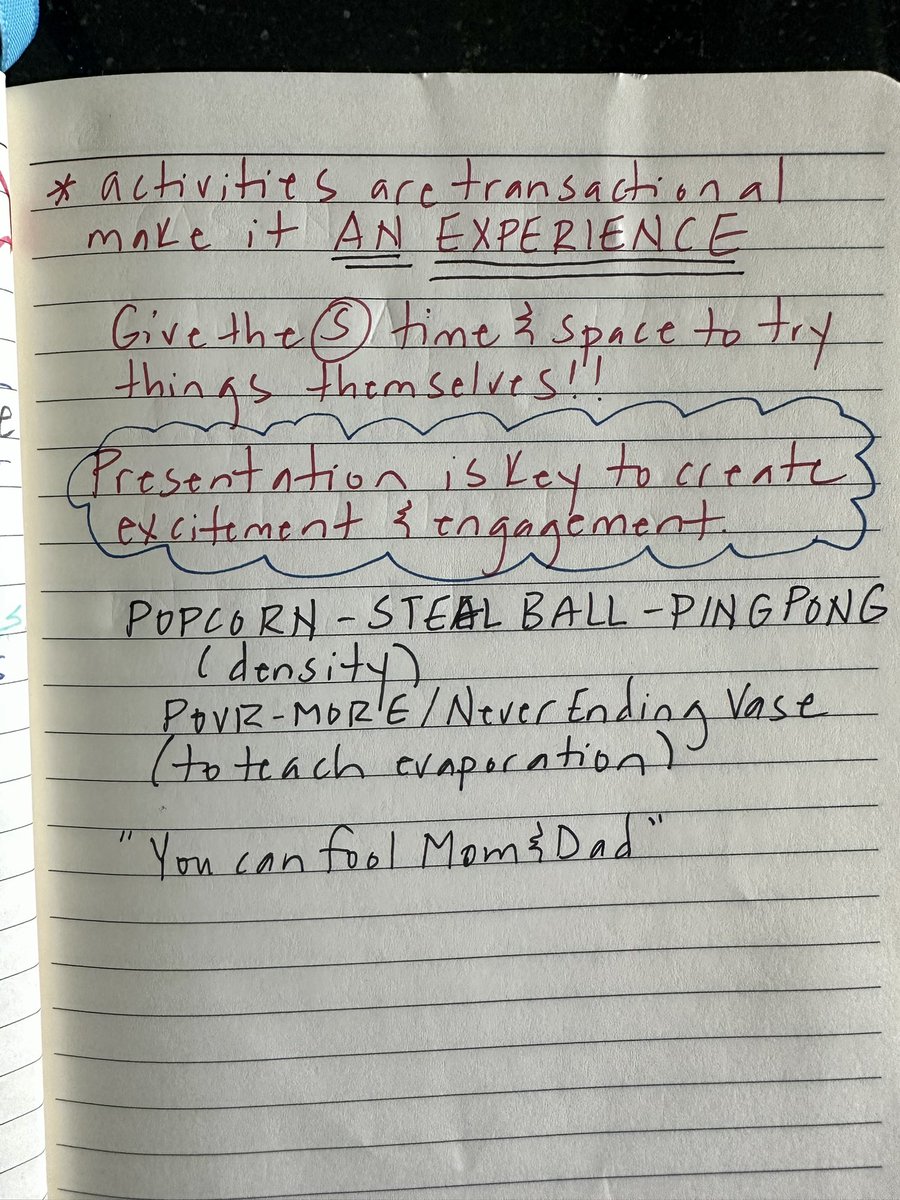 * activities are transactional
make it AN EXPERIENCE
Give the S time & space to try
things themselves!!
Presentation is key to create
excitement & engagement.
POPCORN - STEAL BALL - PING PONG
(density)
POUR-MORE/Never Ending Vase
(to teach evaporation)
"You can fool Mom & Dad"